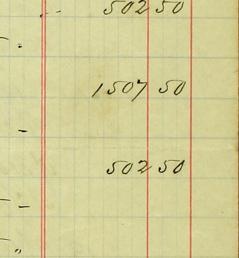 502 50
1507 50
502 50